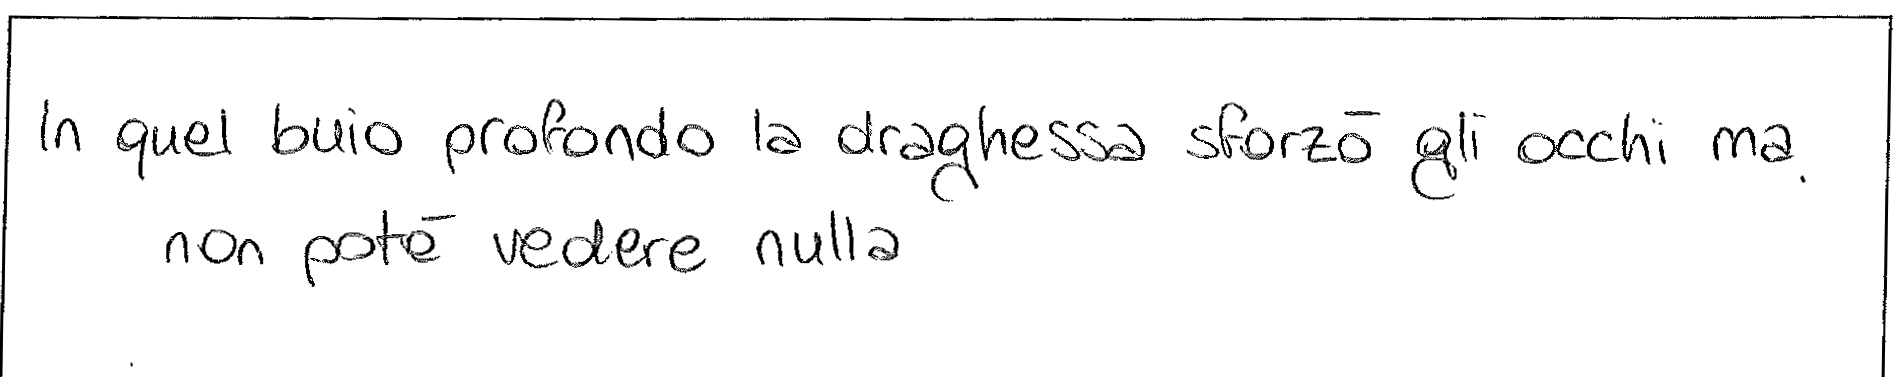 In quel buio profondo la draghessa sforzò gli occhi ma
non potē vedere nulla